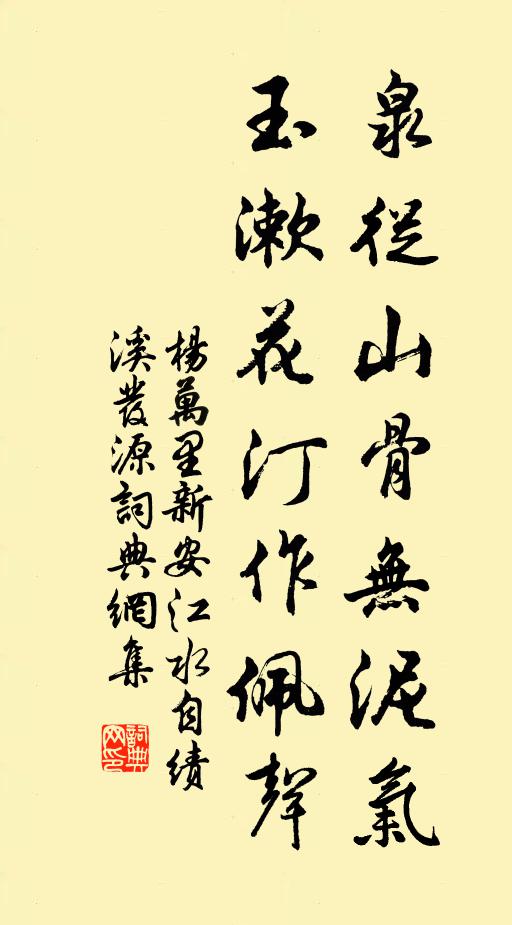 泉從山骨無泥氣
玉漱花汀作佩聲
楊萬里新安江水自績
溪發源詞典網集
詞典網印